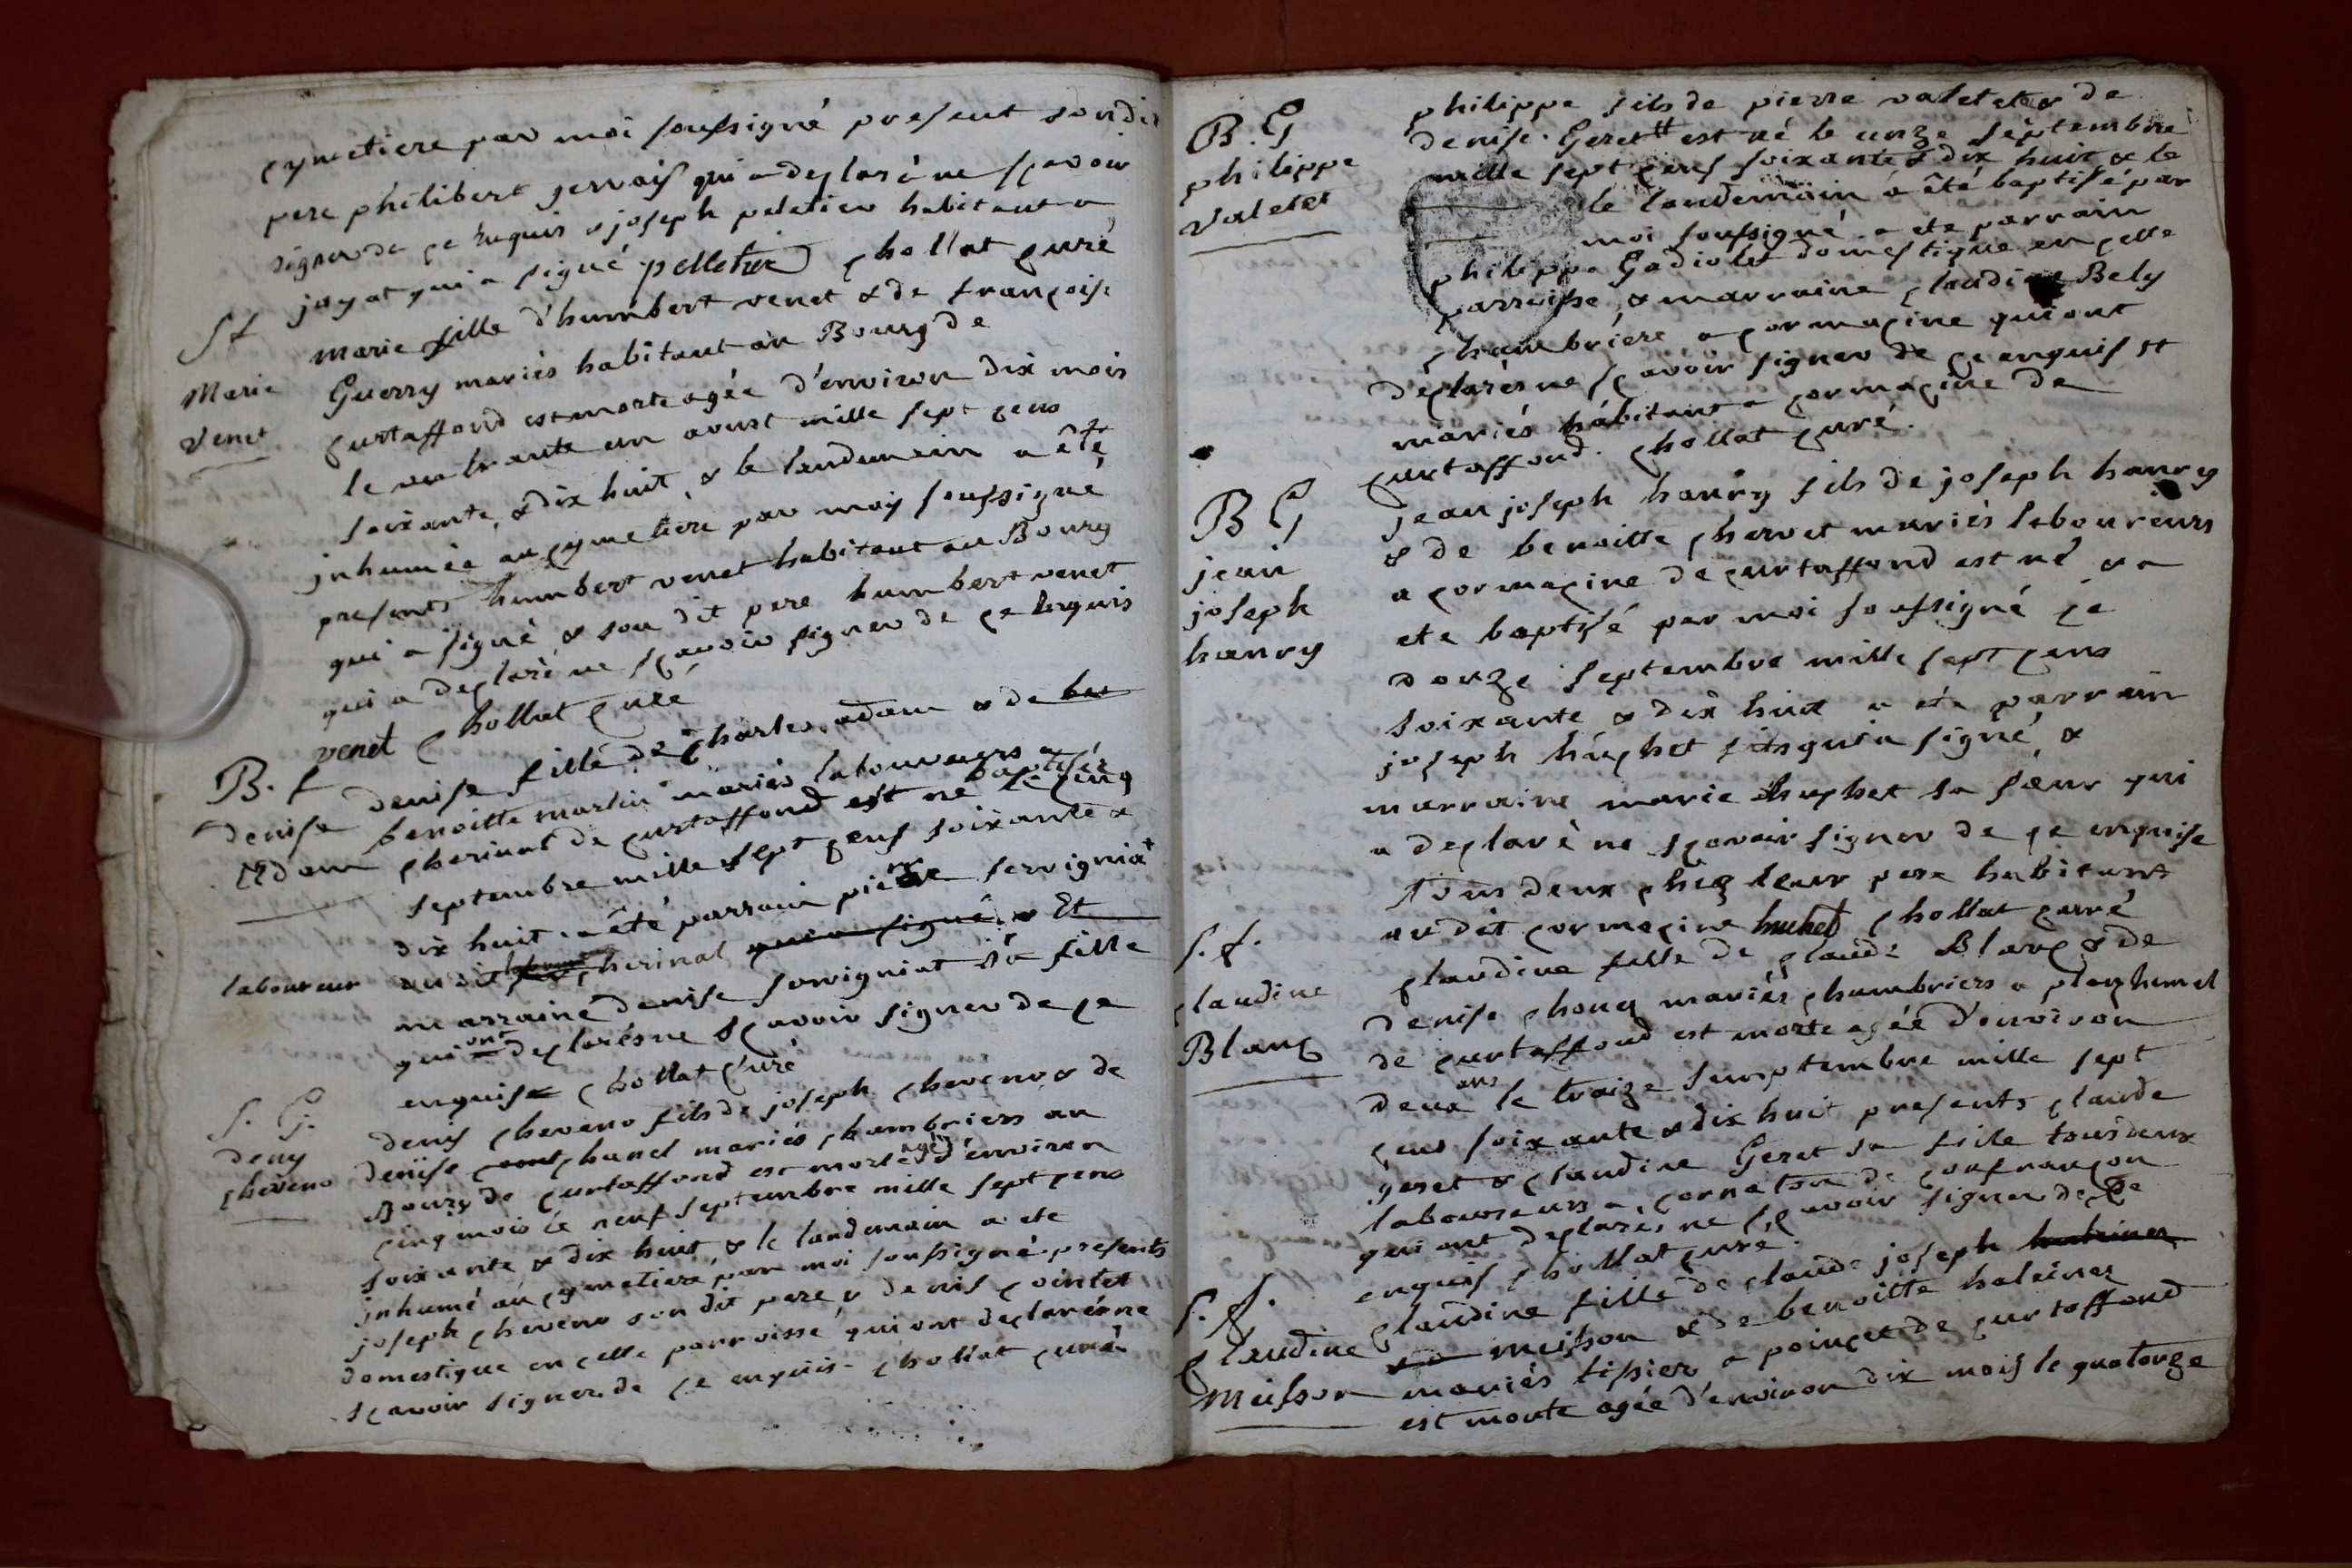 cymetiere par moi soussigné present sondit
pere philibert gervais qui a declaré ne sçavoir
signer de ce enquis & joseph peletier habitant a
jayat qui a signé pelletier chollat curé
S f
Marie
Venet
marie fille d'humbert venet & de françoise
Guerry mariés habitant au Bourg de
curtaffond est morte agée d'environ dix mois
le trante un aoust mille sept cens
soixante & dix huit, & le landemain a été
inhumée au cymetiere par moy soussigné
presents humbert venet habitant au Bourg
qui a signé & son dit pere humbert venet
qui a declaré ne sçavoir signer de ce enquis
venet chollat curé
B. f
denise
Adam
denise fille de Charles adam & de be
benoitte martin mariés laboureurs a
cherinat de curtaffond est ne baptisée le cinq
septembre mille sept cens soixante &
dix huit a été parrain pierre servigniat
laboureur
au dit cherinal qui a signé & Et
marraine denise servigniat sa fille
qui ont declarés ne sçavoir signer de ce
enquise chollat curé
S. G.
deny
cheveno
denis cheveno fils de joseph cheveno & de
denise chanel mariés chambriers au
Bourg de curtaffond est mort agé d'environ
cinq mois le neuf septembre mille sept cens
soixante & dix huit & le landemain a ete
inhumé au cymetiere par moi soussigné presents
joseph cheveno son dit pere & denis cointet
domestique en cette parroisse qui ont declaré ne
sçavoir signer de ce enquis chollat curé
B. G
philippe
Valetet
philippe fils de pierre valetet & de
denise Geret est né le unze septembre
mille sept cens soixante & dix huit & le
le landemain a été baptisé par
moi soussigné a ete parrain
philippe Gadiolet domestique en cette
parroisse & marraine claudine Bely
chambriere a cormacine qui ont
declarés ne sçavoir signer de ce enquis #
mariés habitant a cormacine de
curtaffond. chollat curé.
B G
jean
joseph
hanry
Jean joseph hanry fils de joseph hanry
& de benoitte chervet mariés laboureurs
a cormacine de curtaffond est né & a
ete baptisé par moi soussigné ce
douze septembre mille sept cens
soixante & dix huit a ete parrain
joseph huchet fils qui a signé &
marraine marie huchet sa sœur qui
a declaré ne sçavoir signer de ce enquise
Tous deux chez leur pere habitant
au dit cormacine huchet chollat curé
S. f.
claudine
Blanc
claudine fille de claude Blanc & de
denise mariés chambriers a
de curtaffond est morte agée d'environ
deux ans le traize septembre mille sept
cens soixante & dix huit presents claude
geret & claudine Geret sa fille tous deux
laboureurs a corneton de confrançon
qui ont declarés ne sçavoir signer de ce
enquis chollat curé.
S. f.
Claudine
Muisson
Claudine fille de claude joseph
muisson & de benoitte
mariés tissier a poincet de curtaffond
est morte agée d'environ dix mois le quatorze